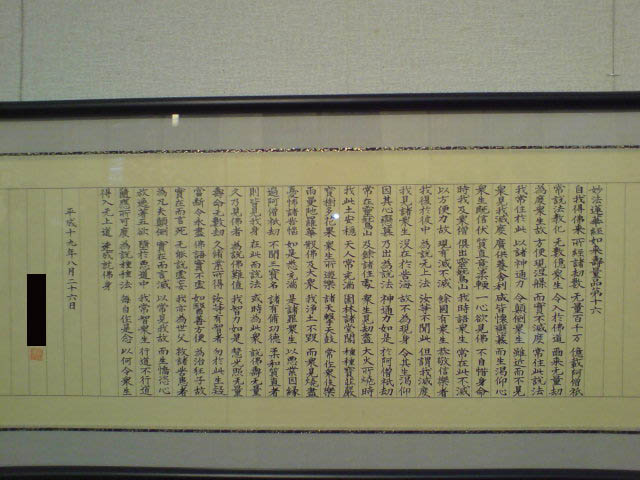 妙法蓮華經如来壽量品第十六
自我得佛来 所經諸劫數 无量百千万 億載阿僧祇
常説法教化 无數億衆生 令入於佛道 爾来无量劫
為度衆生故 方便現涅槃 而實不滅度 常住此説法
我常住於此 以諸神通力 令顛倒衆生 雖近而不見
衆見我滅度 廣供養舎利 咸皆懐戀慕 而生渇仰心
衆生既信伏 質直意柔軟 一心欲見佛 不自惜身命
時我及衆僧 倶出靈鷲山 我時語衆生 常在此不滅
以方便力故 現有滅不滅 餘國有衆生 恭敬信樂者
我復於彼中 為説无上法 汝等不聞此 但謂我滅度
我見諸衆生 没在於苦海 故不為現身 令其生渇仰
因其心戀慕 乃出為説法 神通力如是 於阿僧祇劫
常在靈鷲山 及餘諸住處 衆生見劫盡 大火所燒時
我此土安穏 天人常充満 園林諸堂閣 種種寶荘厳
寶樹多花果 衆生所遊樂 諸天撃天鼓 常作衆伎樂
雨曼陀羅華 散佛及大衆 我浄土不毀 而衆見燒盡
憂怖諸苦悩 如是悉充満 是諸罪衆生 以惡業因縁
過阿僧祇劫 不聞三寶名 諸有修功徳 柔和質直者
則皆見我身 在此而説法 或時為此衆 説佛壽无量
久乃見佛者 為説佛難値 我智力如是 慧光照无量
壽命无數劫 久修業所得 汝等有智者 勿於此生疑
當断令永盡 佛語實不虚 如醫善方便 為治狂子故
實在而言死 无能説虚妄 我亦為世父 救諸苦患者
為凡夫顛倒 實在而言滅 以常見我故 而生憍恣心
放逸著五欲 墮於惡道中 我常知衆生 行道不行道
隨所應可度 為説種種法 毎自作是念 以何令衆生
得入无上道 速成就佛身
平成十九年八月二十六日